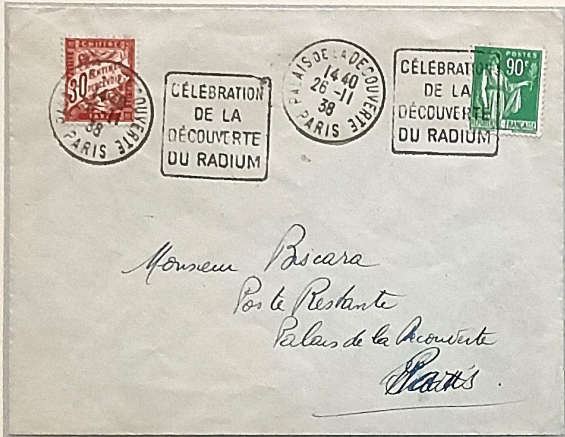 CHIFFRE
30 CENTIMES
A PERCEVOIR
OUVERTE
38
PARIS
CÉLÉBRATION
DE LA
DÉCOUVERTE
DU RADIUM
PALAIS DE LA DECOUVERTE
14 40
26 -11
38
PARIS
CÉLÉBRATION
DE LA
DÉCOUVERTE
DU RADIUM
POSTES
90c
FRANÇAISE
Monsieur Biscara
Poste Restante
Palais de la Découverte
Paris.